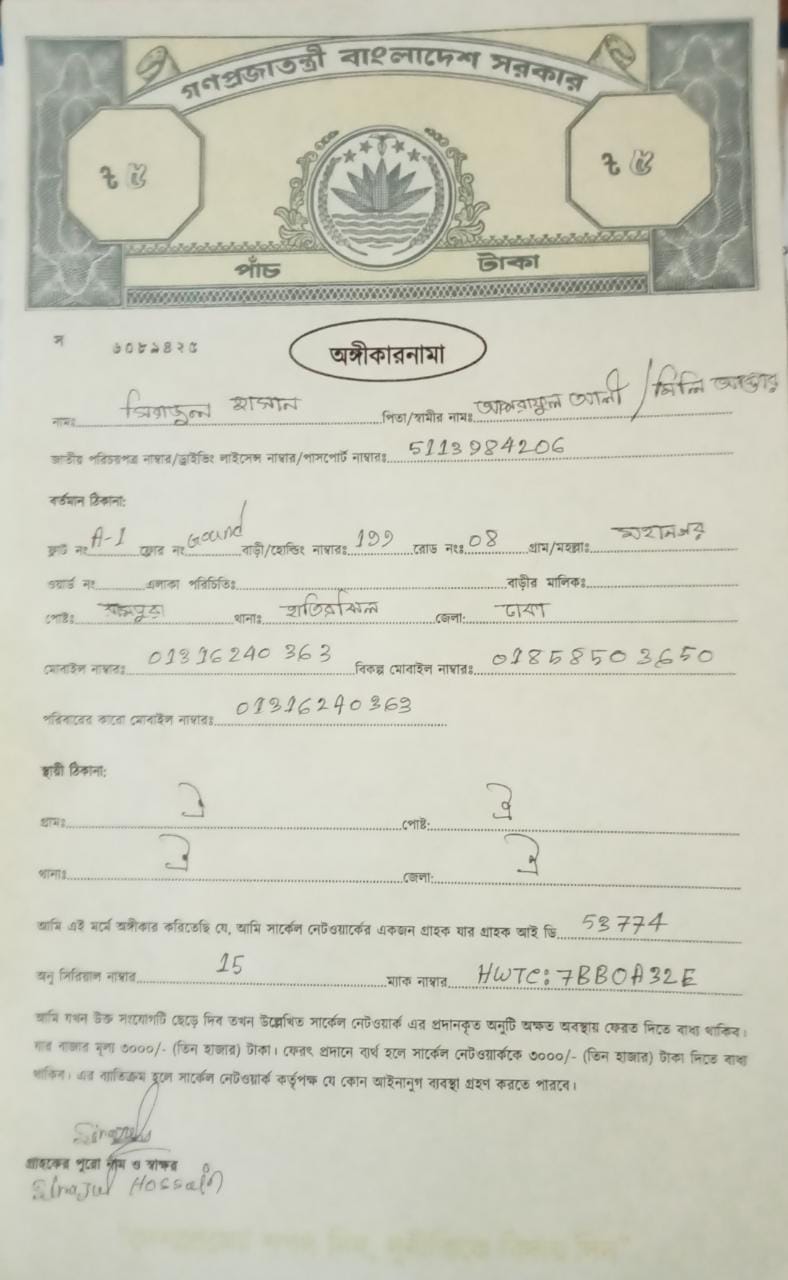 গণপ্রজাতন্ত্রী বাংলাদেশ সরকার
৳ ৫ ৳ ৫
পাঁচ টাকা
স ৬০৮৯৪২৫
অঙ্গীকারনামা
নামঃ সিরাজুল হাসান পিতা/স্বামীর নামঃ আলী / মিলি আক্তার
জাতীয় পরিচয়পত্র নাম্বার/ড্রাইভিং লাইসেন্স নাম্বার/পাসপোর্ট নাম্বারঃ 5113984206
বর্তমান ঠিকানা:
ফ্লাট নং A-1 ফ্লোর নং Gound বাড়ী/হোল্ডিং নাম্বারঃ 199 রোড নংঃ 08 গ্রাম/মহল্লাঃ মহানগর
ওয়ার্ড নং এলাকা পরিচিতিঃ বাড়ীর মালিকঃ
পোষ্টঃ রামপুরা থানাঃ হাতিরঝিল জেলা: ঢাকা
মোবাইল নাম্বারঃ 01316240363 বিকল্প মোবাইল নাম্বারঃ 01858503650
পরিবারের কারো মোবাইল নাম্বারঃ 01316240363
স্থায়ী ঠিকানা:
গ্রামঃ ঐ পোষ্ট: ঐ
থানাঃ ঐ জেলা: ঐ
আমি এই মর্মে অঙ্গীকার করিতেছি যে, আমি সার্কেল নেটওয়ার্কের একজন গ্রাহক যার গ্রাহক আই ডি 53774
অনু সিরিয়াল নাম্বার 15 ম্যাক নাম্বার HWTC:7BB0A32E
আমি যখন উক্ত সংযোগটি ছেড়ে দিব তখন উল্লেখিত সার্কেল নেটওয়ার্ক এর প্রদানকৃত অনুটি অক্ষত অবস্থায় ফেরত দিতে বাধ্য থাকিব।
যার বাজার মূল্য ৩০০০/- (তিন হাজার) টাকা। ফেরৎ প্রদানে ব্যর্থ হলে সার্কেল নেটওয়ার্ককে ৩০০০/- (তিন হাজার) টাকা দিতে বাধ্য
থাকিব। এর ব্যতিক্রম হলে সার্কেল নেটওয়ার্ক কর্তৃপক্ষ যে কোন আইনানুগ ব্যবস্থা গ্রহণ করতে পারবে।
গ্রাহকের পুরো নাম ও স্বাক্ষর
Sirajul Hossain